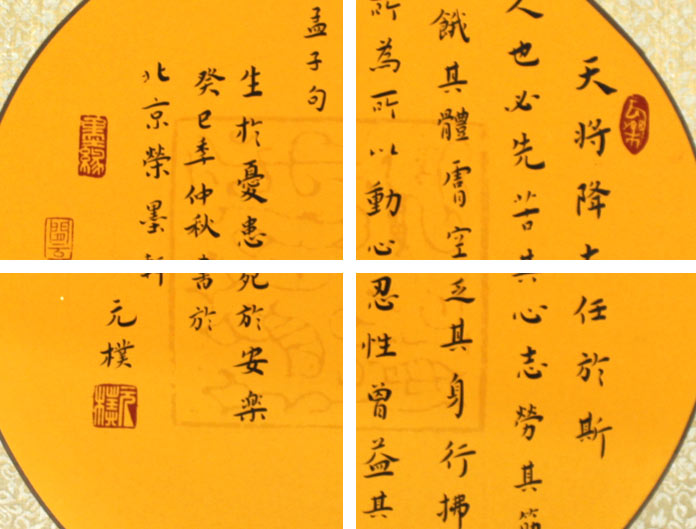 天將降大任於斯
人也必先苦其心志勞其筋
餓其體膚空乏其身行拂
所為所以動心忍性曾益其
孟子句
生於憂患死於安樂
癸巳秊仲秋書於
北京榮墨軒
元樸
元樸